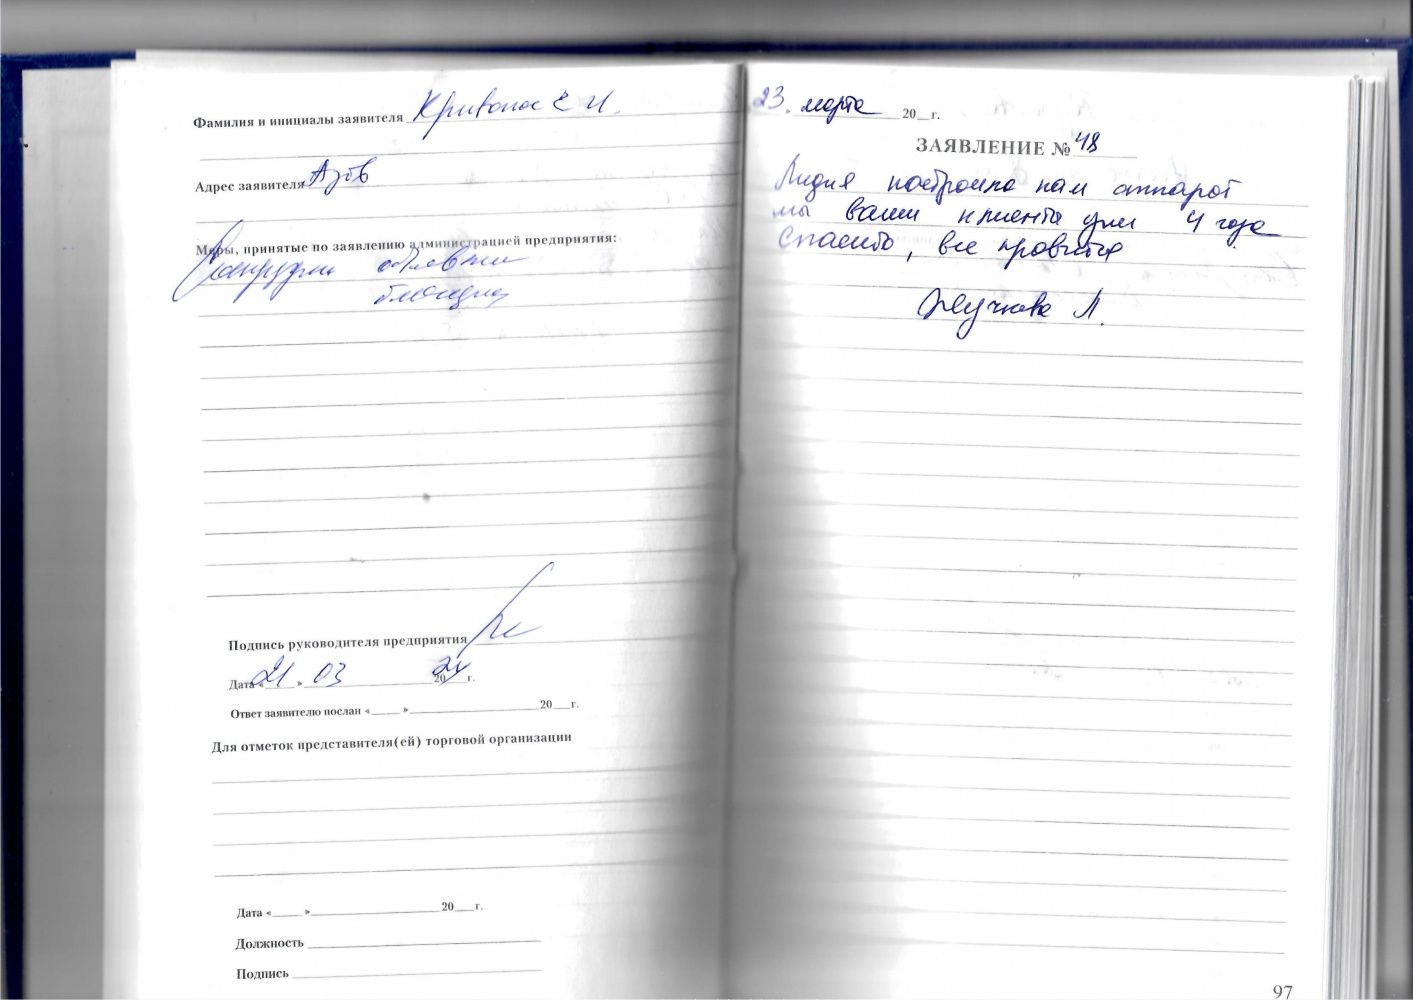 Фамилия и инициалы заявителя Кривонос Е И.
Адрес заявителя Азов
Меры, принятые по заявлению администрацией предприятия:
объявлена
Подпись руководителя предприятия
Дата « 21 » 03 2024 г.
Ответ заявителю послан «____» ____ 20__г.
Для отметок представителя(ей) торговой организации
Дата «____» ____ 20__г.
Должность
Подпись
23. марта 20__г.
ЗАЯВЛЕНИЕ № 48
Лидия настроила нам аппарат
мы ваши клиенты уже 4 года
Спасибо, все нравится
Л.
97